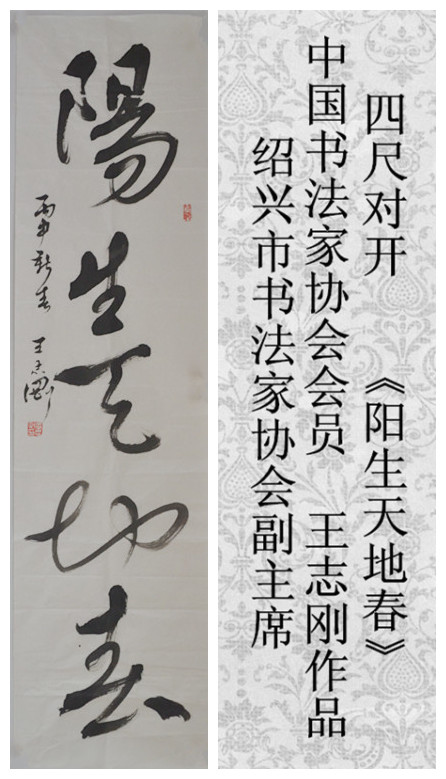 陽生天地春
丙申新春 王志剛
四尺对开 《阳生天地春》
中国书法家协会会员 王志刚作品
绍兴市书法家协会副主席